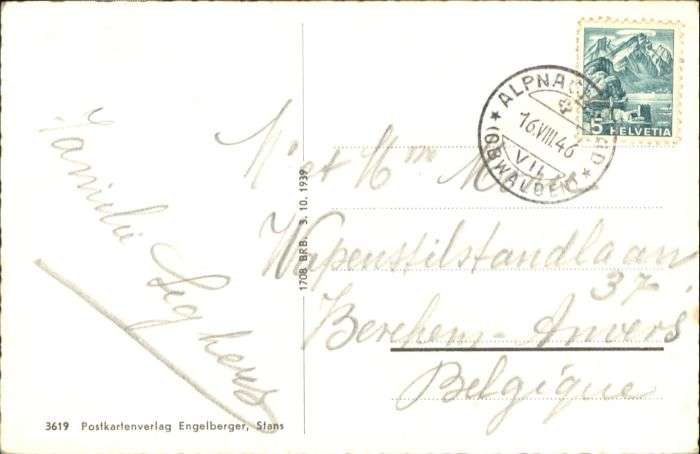 Familie Seghers
3619 Postkartenverlag Engelberger, Stans
1708 BRB. 3. 10. 1939
5 HELVETIA
16.VIII.46
VII
(OBWALDEN)
Mr et Mme
Wapenstilstandlaan
37
Berchem-Anvers
Belgique